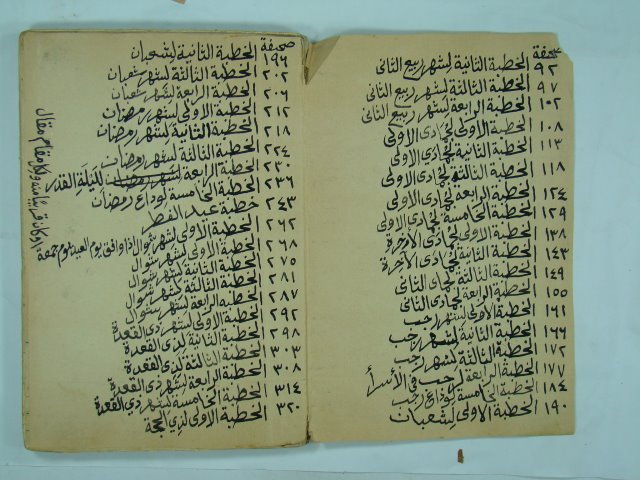 صحيفة
٩٢ الخطبة الثانية لشهر ربيع الثاني
٩٧ الخطبة الثالثة لشهر ربيع الثاني
١٠٢ الخطبة الرابعة لشهر ربيع الثاني
١٠٨ الخطبة الاولى لجمادى الاولى
١١٣ الخطبة الثانية لجمادى الاولى
١١٨ الخطبة الثالثة لجمادى الاولى
١٢٤ الخطبة الرابعة لجمادى الاولى
١٢٩ الخطبة الخامسة لجمادى الاولى
١٣٨ الخطبة الاولى لجمادى الآخرة
١٤٣ الخطبة الثانية لجمادى الآخرة
١٤٩ الخطبة الثالثة لجمادى الثاني
١٥٥ الخطبة الرابعة لجمادى الثاني
١٦١ الخطبة الاولى لشهر رجب
١٦٦ الخطبة الثانية لشهر رجب
١٧٢ الخطبة الثالثة لشهر رجب
١٧٧ الخطبة الرابعة لرجب في الأسرا
١٨٤ الخطبة الخامسة لوداع رجب
١٩٠ الخطبة الاولى لشعبان
صحيفة
١٩٦ الخطبة الثانية لشعبان
٢٠٢ الخطبة الثالثة لشهر شعبان
٢٠٦ الخطبة الرابعة لشهر شعبان
٢١٢ الخطبة الاولى لشهر رمضان
٢١٨ الخطبة الثانية لشهر رمضان
٢٢٤ الخطبة الثالثة لشهر رمضان
٢٣٠ الخطبة الرابعة لشهر رمضان لليلة القدر
٢٣٦ الخطبة الخامسة لوداع رمضان
٢٤٣ خطبة عيد الفطر
٢٦٢ الخطبة الاولى لشهر شوال اذا وافق يوم العيد يوم جمعة
٢٦٨ الخطبة الاولى لشهر شوال
٢٧٥ الخطبة الثانية لشهر شوال
٢٨١ الخطبة الثالثة لشهر شوال
٢٨٧ الخطبة الرابعة لشهر شوال
٢٩٢ الخطبة الاولى لشهر ذي القعدة
٢٩٨ الخطبة الثانية لذي القعدة
٣٠٣ الخطبة الثالثة لذي القعدة
٣٠٨ الخطبة الرابعة لشهر ذي القعدة
٣١٤ الخطبة الخامسة لشهر ذي القعدة
٣٢٠ الخطبة الاولى لذي الحجة
او كان قريبا منه ولكل مقام مقال